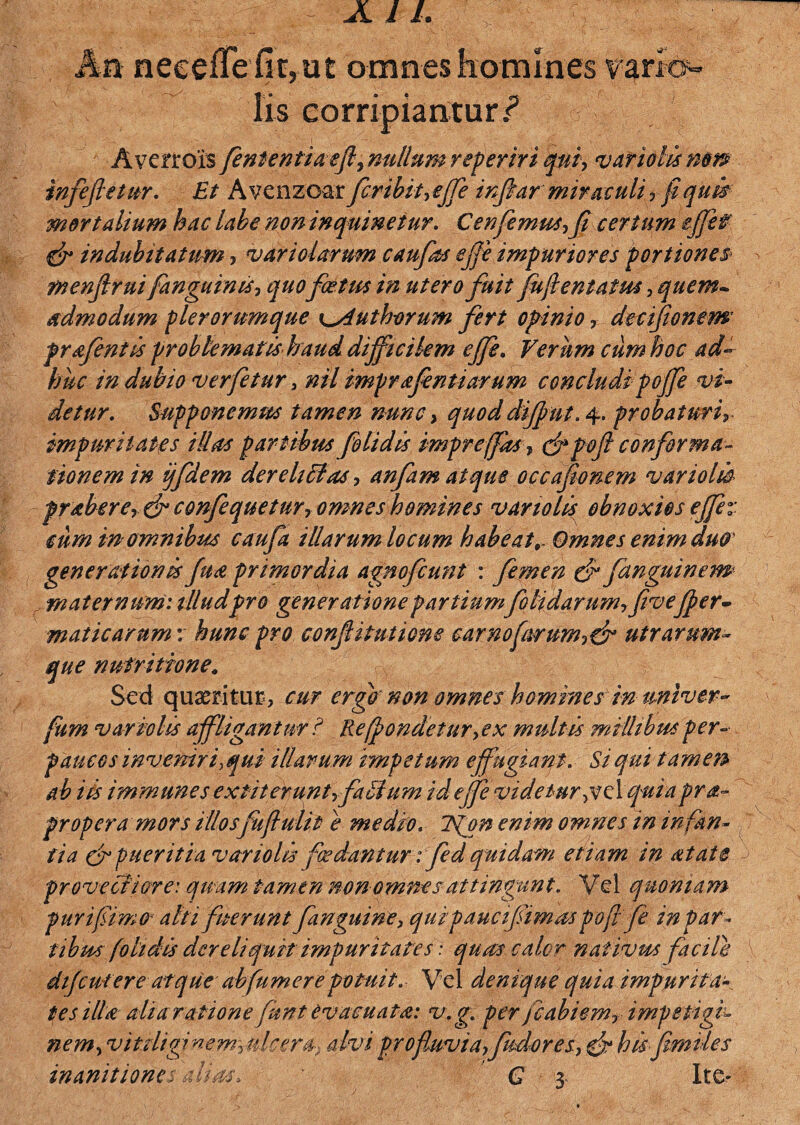 XII.
An necesse sit, ut omnes homines vario-
lis corripiantur?
Averroïs sententia est, nullum reperiri qui, variolis non
infestetur. Et Avenzoar scribit, esse instar miraculi, si quis
mortalium hac labe non inquinetur. Censemus, si certum esset
& indubitatum, variolarum causas esse impuriores portiones
menstrui sanguinis, quo fœtus in utero fuit sustentatus, quem-
admodum plerorumque Authorum fert opinio, decisionem
præsentis problematis haud difficilem esse. Verùm cùm hoc ad-
huc in dubio versetur, nil impræsentiarum concludi posse vi-
detur. Supponemus tamen nunc, quod disput. 4. probaturi,
impuritates illas partibus solidis impressas, & post conforma-
tionem in ijsdem derelictas, ansam atque occasionem variolis
præbere, & consequetur, omnes homines variolis obnoxios esse:
cùm in omnibus causa illarum locum habeat. Omnes enim duo
generationis suæ primordia agnoscunt : semen & sanguinem
maternum: illud pro generatione partium solidarum, sive sper-
maticarum: hunc pro constitutione carnosarum, & utrarum-
que nutritione.
Sed quæritur, cur ergò non omnes homines in univer-
sum variolis affligantur? Respondetur, ex multis millibus per-
paucos inveniri, qui illarum impetum effugiant. Si qui tamen
ab iis immunes extiterunt, factum id esse videtur, vel quia præ-
propera mors illos sustulit è medio. Non enim omnes in infan-
tia & pueritia variolis fœdantur: sed quidam etiam in ætate
provectiore: quam tamen non omnes attingunt. Vel quoniam
purissimo alti fuerunt sanguine, qui paucissimas post se in par-
tibus solidis dereliquit impuritates: quas calor nativus facilè
discutere atque absumere potuit. Vel denique quia impurita-
tes illæ alia ratione sunt evacuatæ: v.g. per scabiem, impetigi-
nem, vitiliginem, ulcera, alvi profluvia, sudores, & his similes
inanitiones alias.
G 3 Ite-